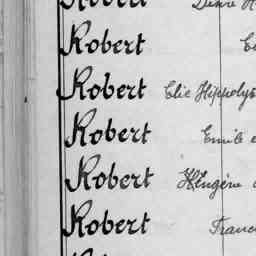 Robert Désiré H
Robert E
Robert Elie Hippolyt
Robert Emile
Robert Hügène
Robert Franc